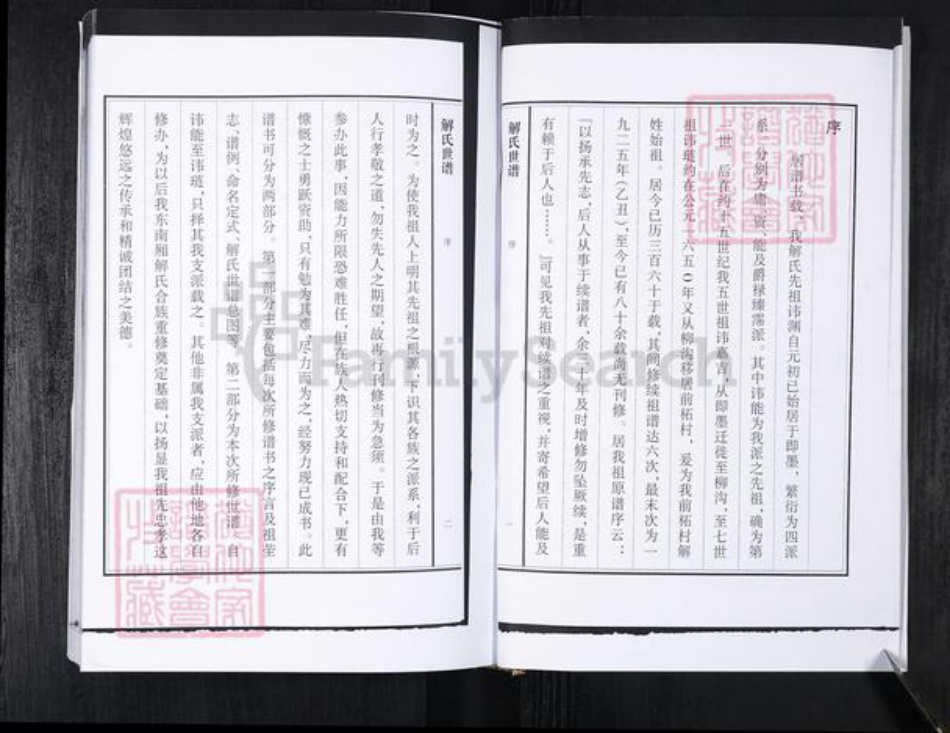 序
居谱书载，我解氏先祖讳渊自元初已始居于即墨，繁衍为四派
系，分别为庸、资、能及爵禄臻霈派。其中讳能为我派之先祖，确为第
一世，后在约十五世纪我五世祖讳嘉言，从即墨迁徙至柳沟，至七世
祖讳琏约在公元一六五0年又从柳沟移居前柘村，爰为我前柘村解
姓始祖。居今已历三百六十于载，其间修续祖谱达六次，最末次为一
九二五年（乙丑），至今已有八十余载尚无刊修。居我祖原谱序云：
『以扬承先志，后人从事于续谱者，余三十年及时增修勿坠厥续，是重
有赖于后人也……。』可见我先祖对续谱之重视，并寄希望后人能及
解氏世谱
序
一
解氏世谱
序
二
时为之。为使我祖人上明其先祖之根源，下识其各族之派系，利于后
人行孝敬之道，勿失先人之期望，故再行刊修当为急须。于是由我等
参办此事，因能力所限恐难胜任，但在族人热切支持和配合下，更有
慷慨之士勇跃资助，只有勉为其难，尽力而为之，经努力现已成书。此
谱书可分为两部分。第一部分主要包括每次所修谱书之序言及祖茔
志、谱例、命名定式、解氏世谱总图等。第二部分为本次所修世谱。自
讳能至讳琏，只择其我支派载之。其他非属我支派者，应由他地各自
修办，为以后我东南厢解氏合族重修奠定基础，以扬显我祖先忠孝这
辉煌悠远之传承和精诚团结之美德。
FamilySearch